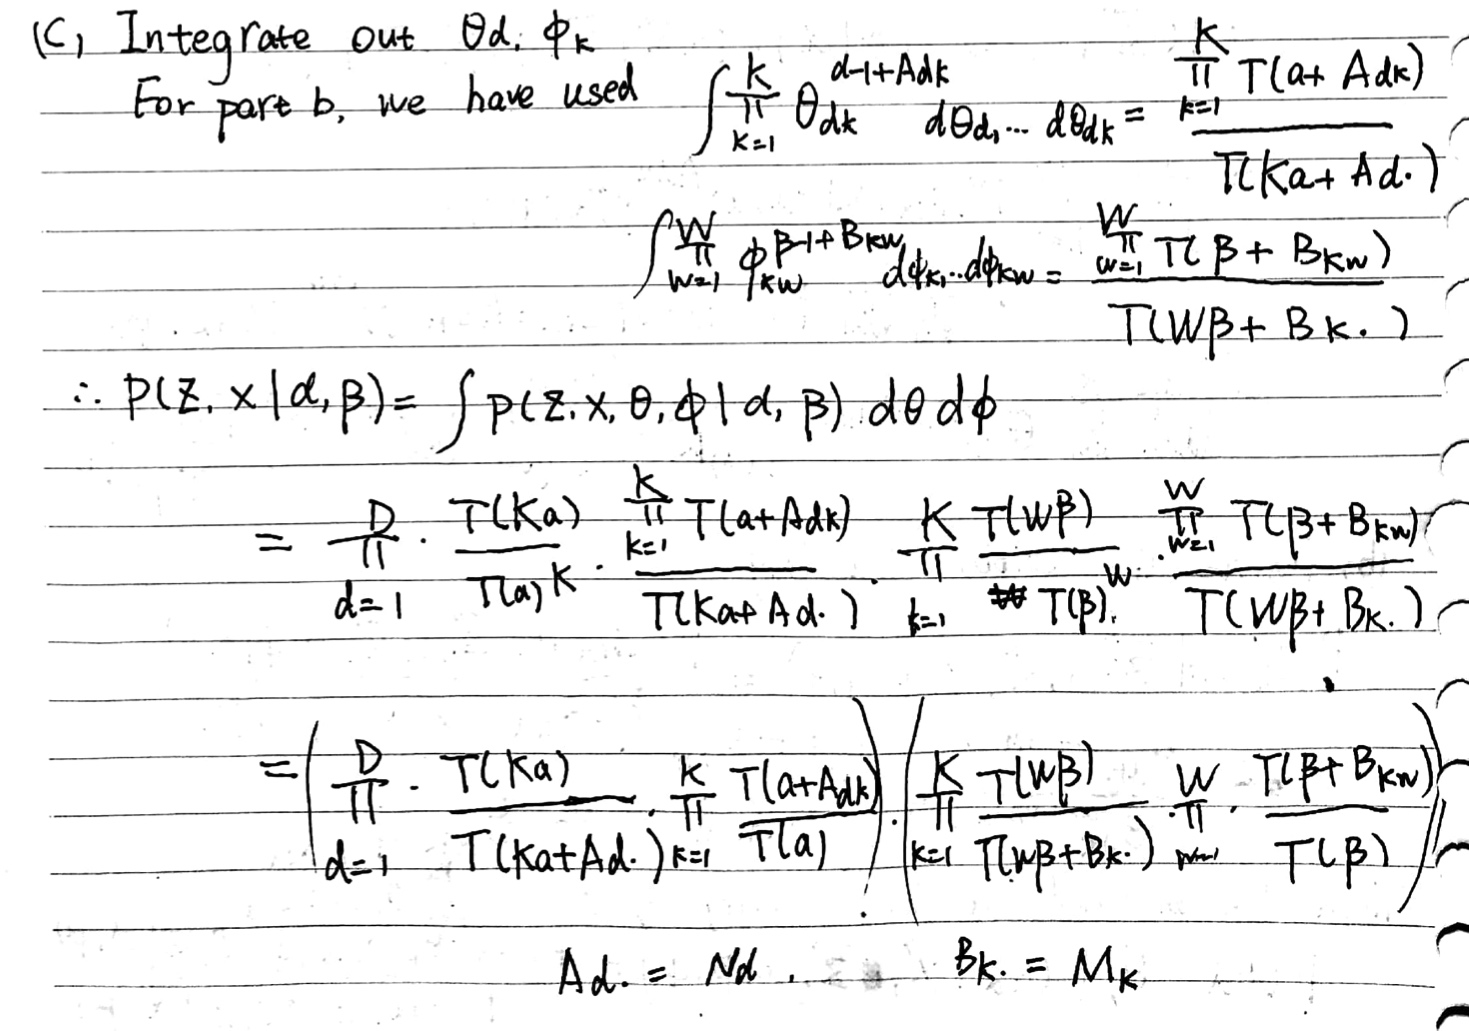 (C) Integrate out θd, ϕk
For part b, we have used ∫ ∏_{k=1}^{K} θ_{dk}^{α-1+A_{dk}} dθ_{d1}... dθ_{dk} = ∏_{k=1}^{K} Γ(α+A_{dk}) / Γ(Kα+A_{d·})
∫ ∏_{w=1}^{W} ϕ_{kw}^{β-1+B_{kw}} dϕ_{k1}...dϕ_{kw} = ∏_{w=1}^{W} Γ(β+B_{kw}) / Γ(Wβ+B_{k·})
∴ P(Z, X|α, β) = ∫ P(Z, X, θ, ϕ|α, β) dθ dϕ
= ∏_{d=1}^{D} · Γ(Kα) / Γ(α)^K · ∏_{k=1}^{K} Γ(α+A_{dk}) / Γ(Kα+A_{d·}) · ∏_{k=1}^{K} Γ(Wβ) / Γ(β)^W · ∏_{w=1}^{W} Γ(β+B_{kw}) / Γ(Wβ+B_{k·})
= (∏_{d=1}^{D} · Γ(Kα) / Γ(Kα+A_{d·}) · ∏_{k=1}^{K} Γ(α+A_{dk}) / Γ(α)) · (∏_{k=1}^{K} Γ(Wβ) / Γ(Wβ+B_{k·}) · ∏_{w=1}^{W} · Γ(β+B_{kw}) / Γ(β))
A_{d·} = N_d , B_{k·} = M_k